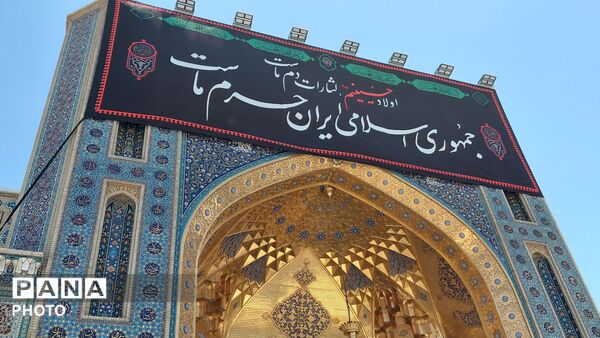 اولاد حسینیم لثارات دم ماست
جمهوری اسلامی ایران حرم ماست
PANA
PHOTO